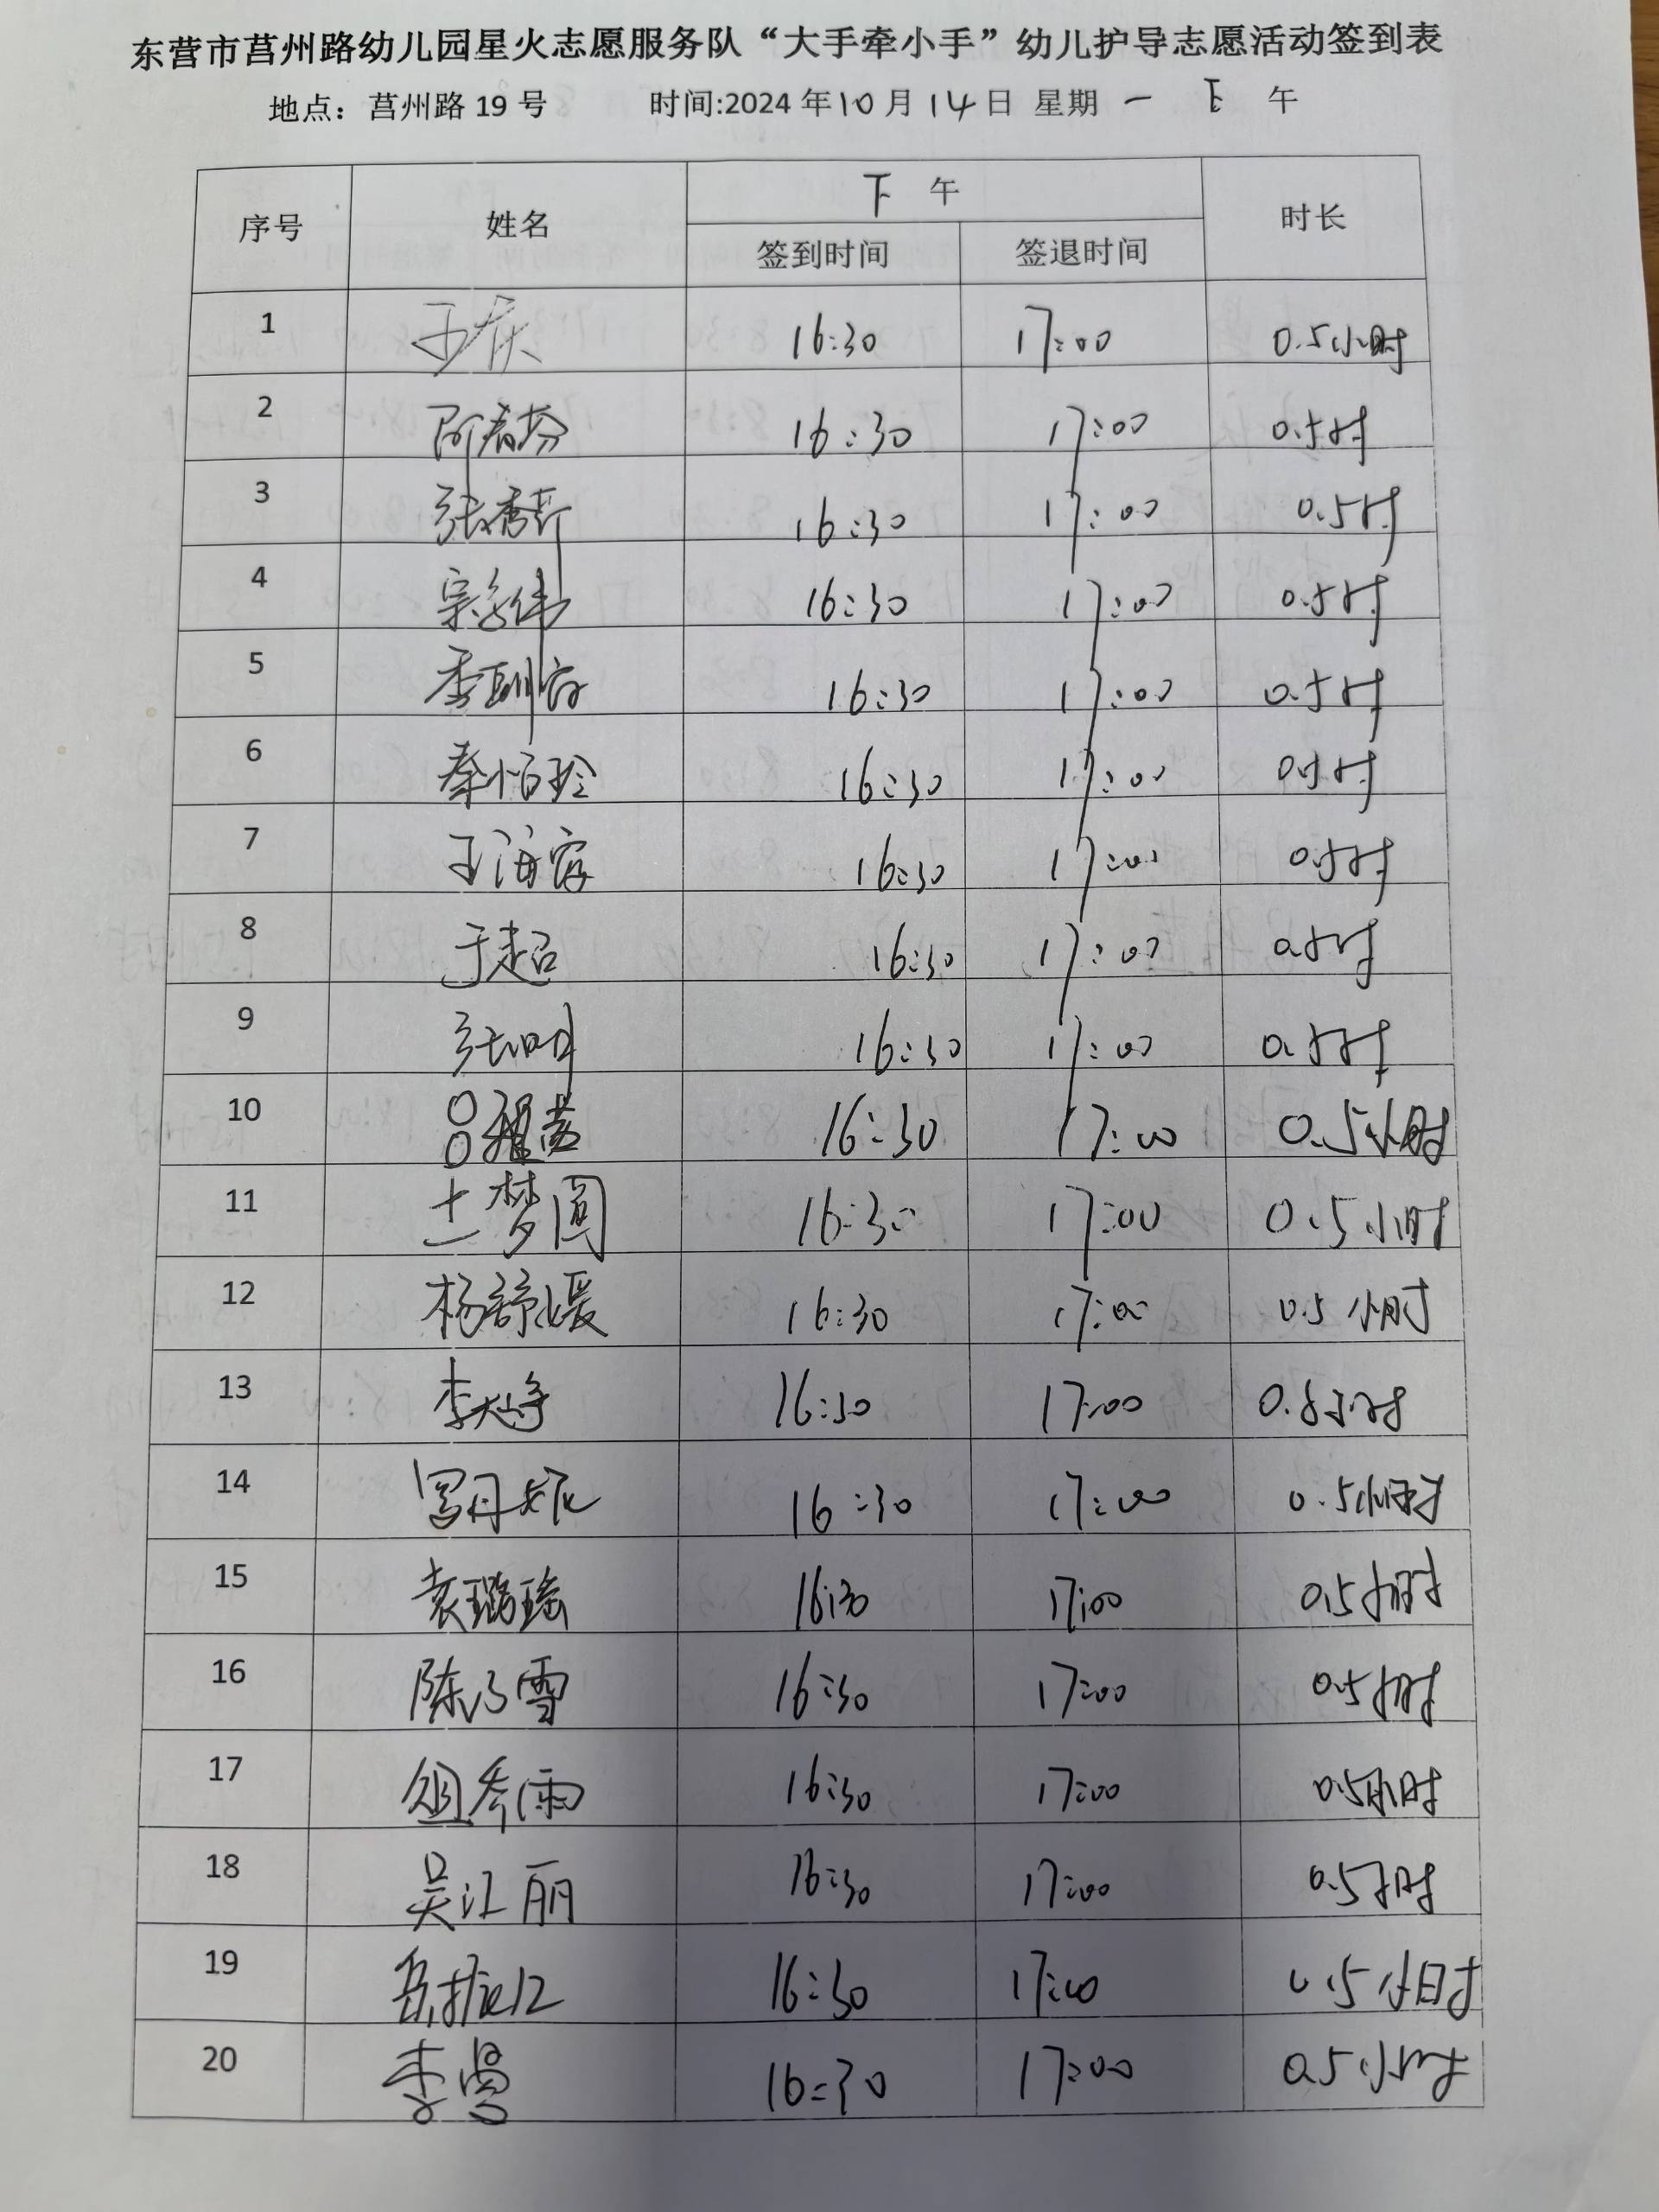 东营市莒州路幼儿园星火志愿服务队“大手牵小手”幼儿护导志愿活动签到表
地点：莒州路 19 号 时间:2024 年 10 月 14 日 星期 一 下 午
序号 姓名 下 午 时长
签到时间 签退时间
1 16:30 17:00 0.5小时
2 16:30 17:00 0.5时
3 16:30 17:00 0.5时
4 16:30 17:00 0.5时
5 16:30 17:00 0.5时
6 16:30 17:00 0.5时
7 王海容 16:30 17:00 0.5时
8 于超 16:30 17:00 0.5时
9 张明 16:30 17:00 0.5时
10 16:30 17:00 0.5小时
11 王梦圆 16:30 17:00 0.5小时
12 杨舒媛 16:30 17:00 0.5小时
13 16:30 17:00 0.5小时
14 16:30 17:00 0.5小时
15 袁璐瑶 16:30 17:00 0.5小时
16 陈乃雪 16:30 17:00 0.5小时
17 16:30 17:00 0.5小时
18 吴江丽 16:30 17:00 0.5小时
19 16:30 17:00 0.5小时
20 16:30 17:00 0.5小时